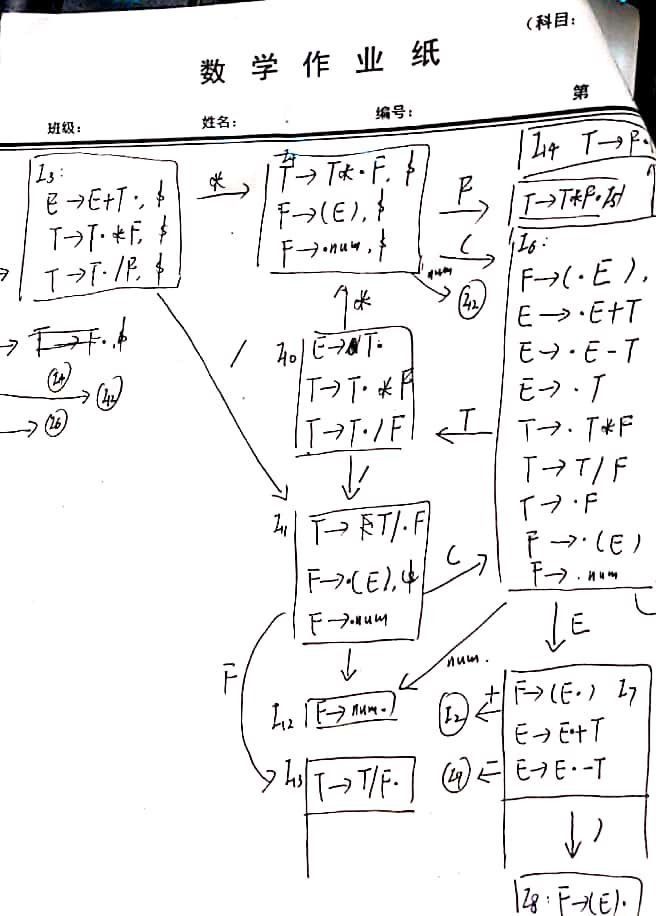 (科目:
数学作业纸
班级: 姓名: 编号: 第
I3:
E→E+T·, $
T→T·*F, $
T→T·/F, $
*
T→T*·F, $
F→(E), $
F→·num, $
F
(
num
I12
I14 T→F·
T→T*F·
I6:
F→(·E),
E→·E+T
E→·E-T
E→·T
T→·T*F
T→T/F
T→·F
F→·(E)
F→·num
T→F·,$
I4
I12
I6
*
/
I10
E→T·
T→T·*F
T→T·/F
T
/
I11
T→T/·F
F→·(E),$
F→·num
(
F
num.
E
I12
F→num·
I13
T→T/F·
I2
+
F→(E·) I7
E→E·+T
I9
-
E→E·-T
)
I8: F→(E)·